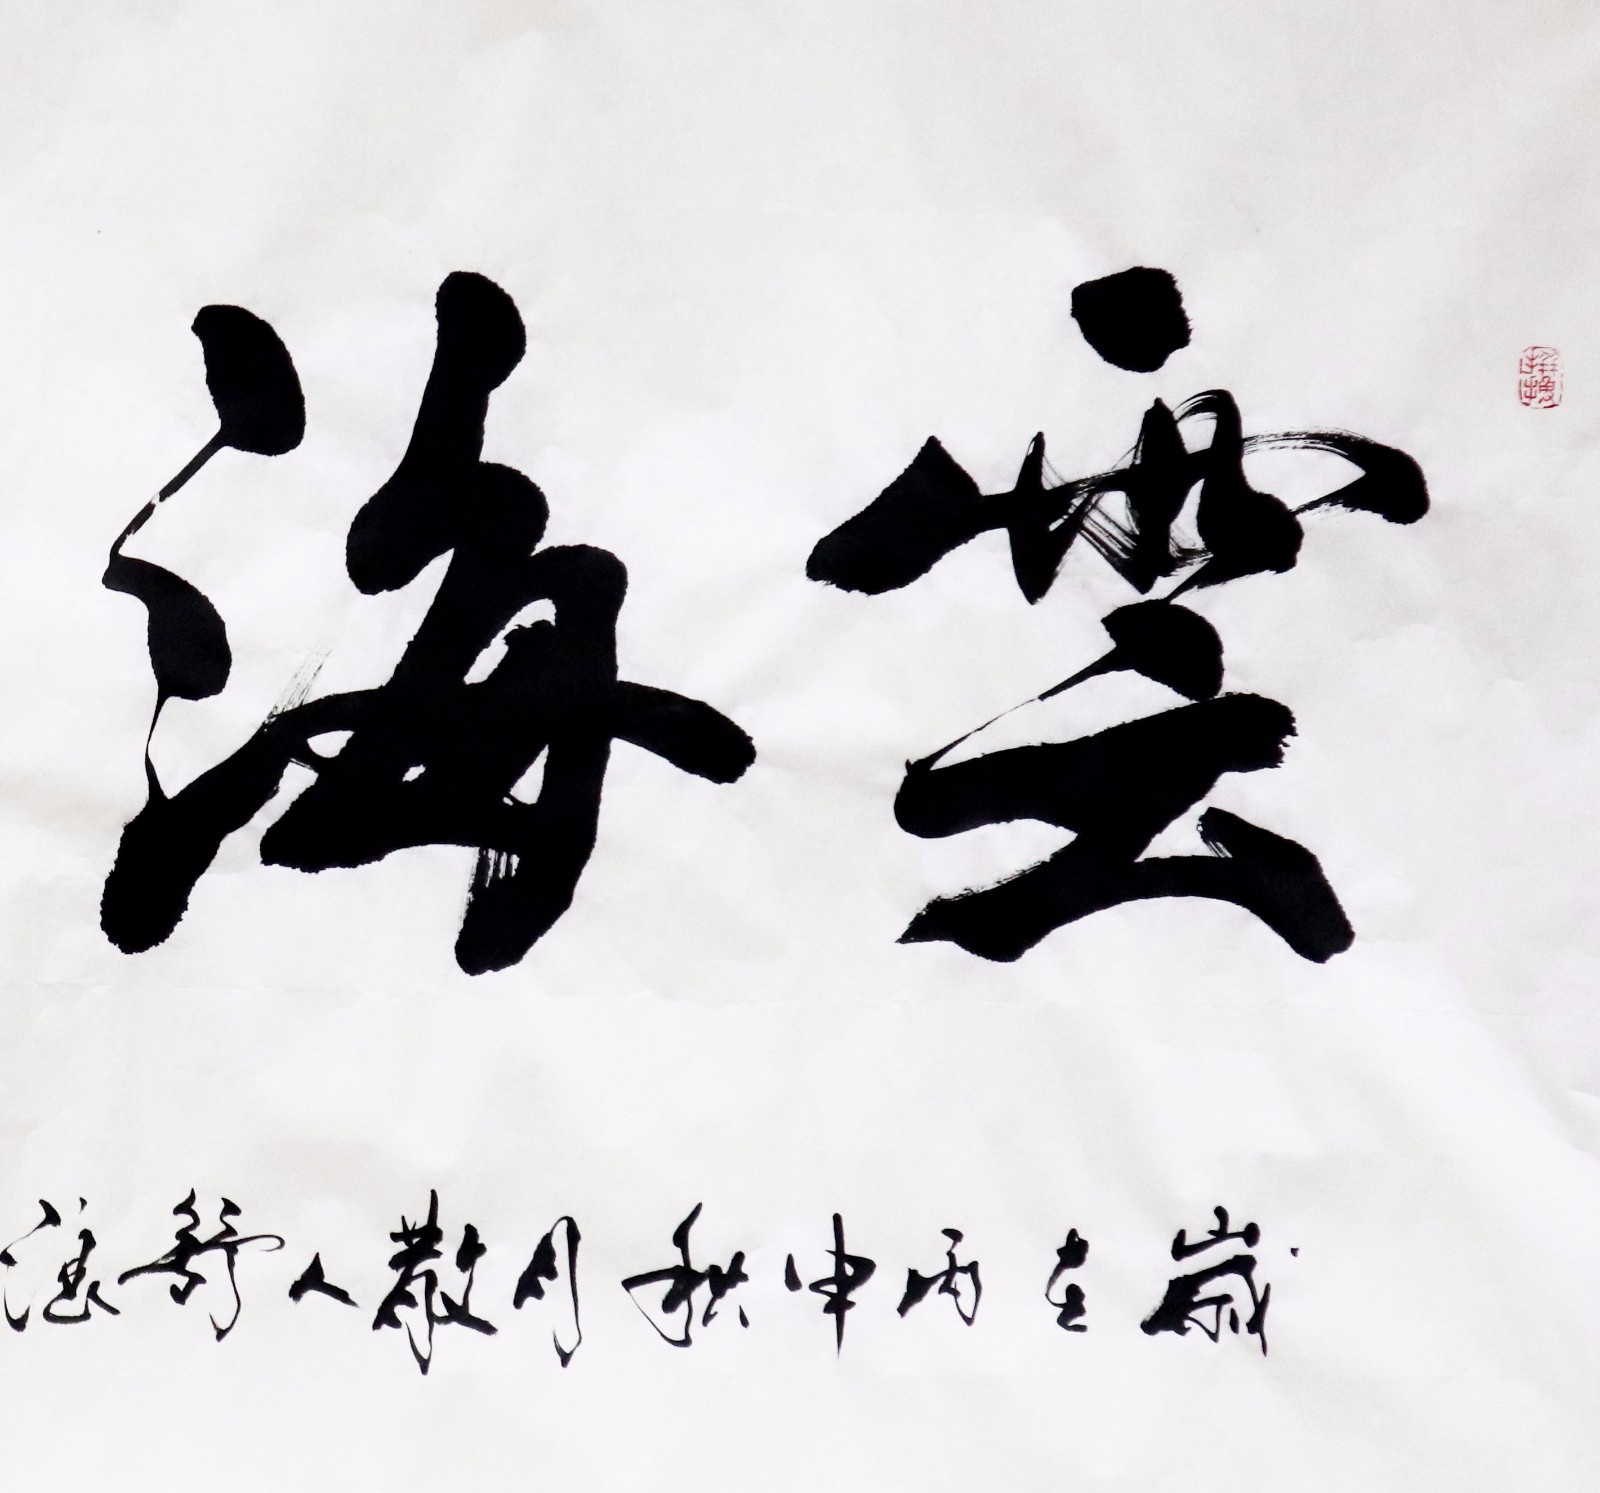 雲海
歲在丙申秋月散人舒浪